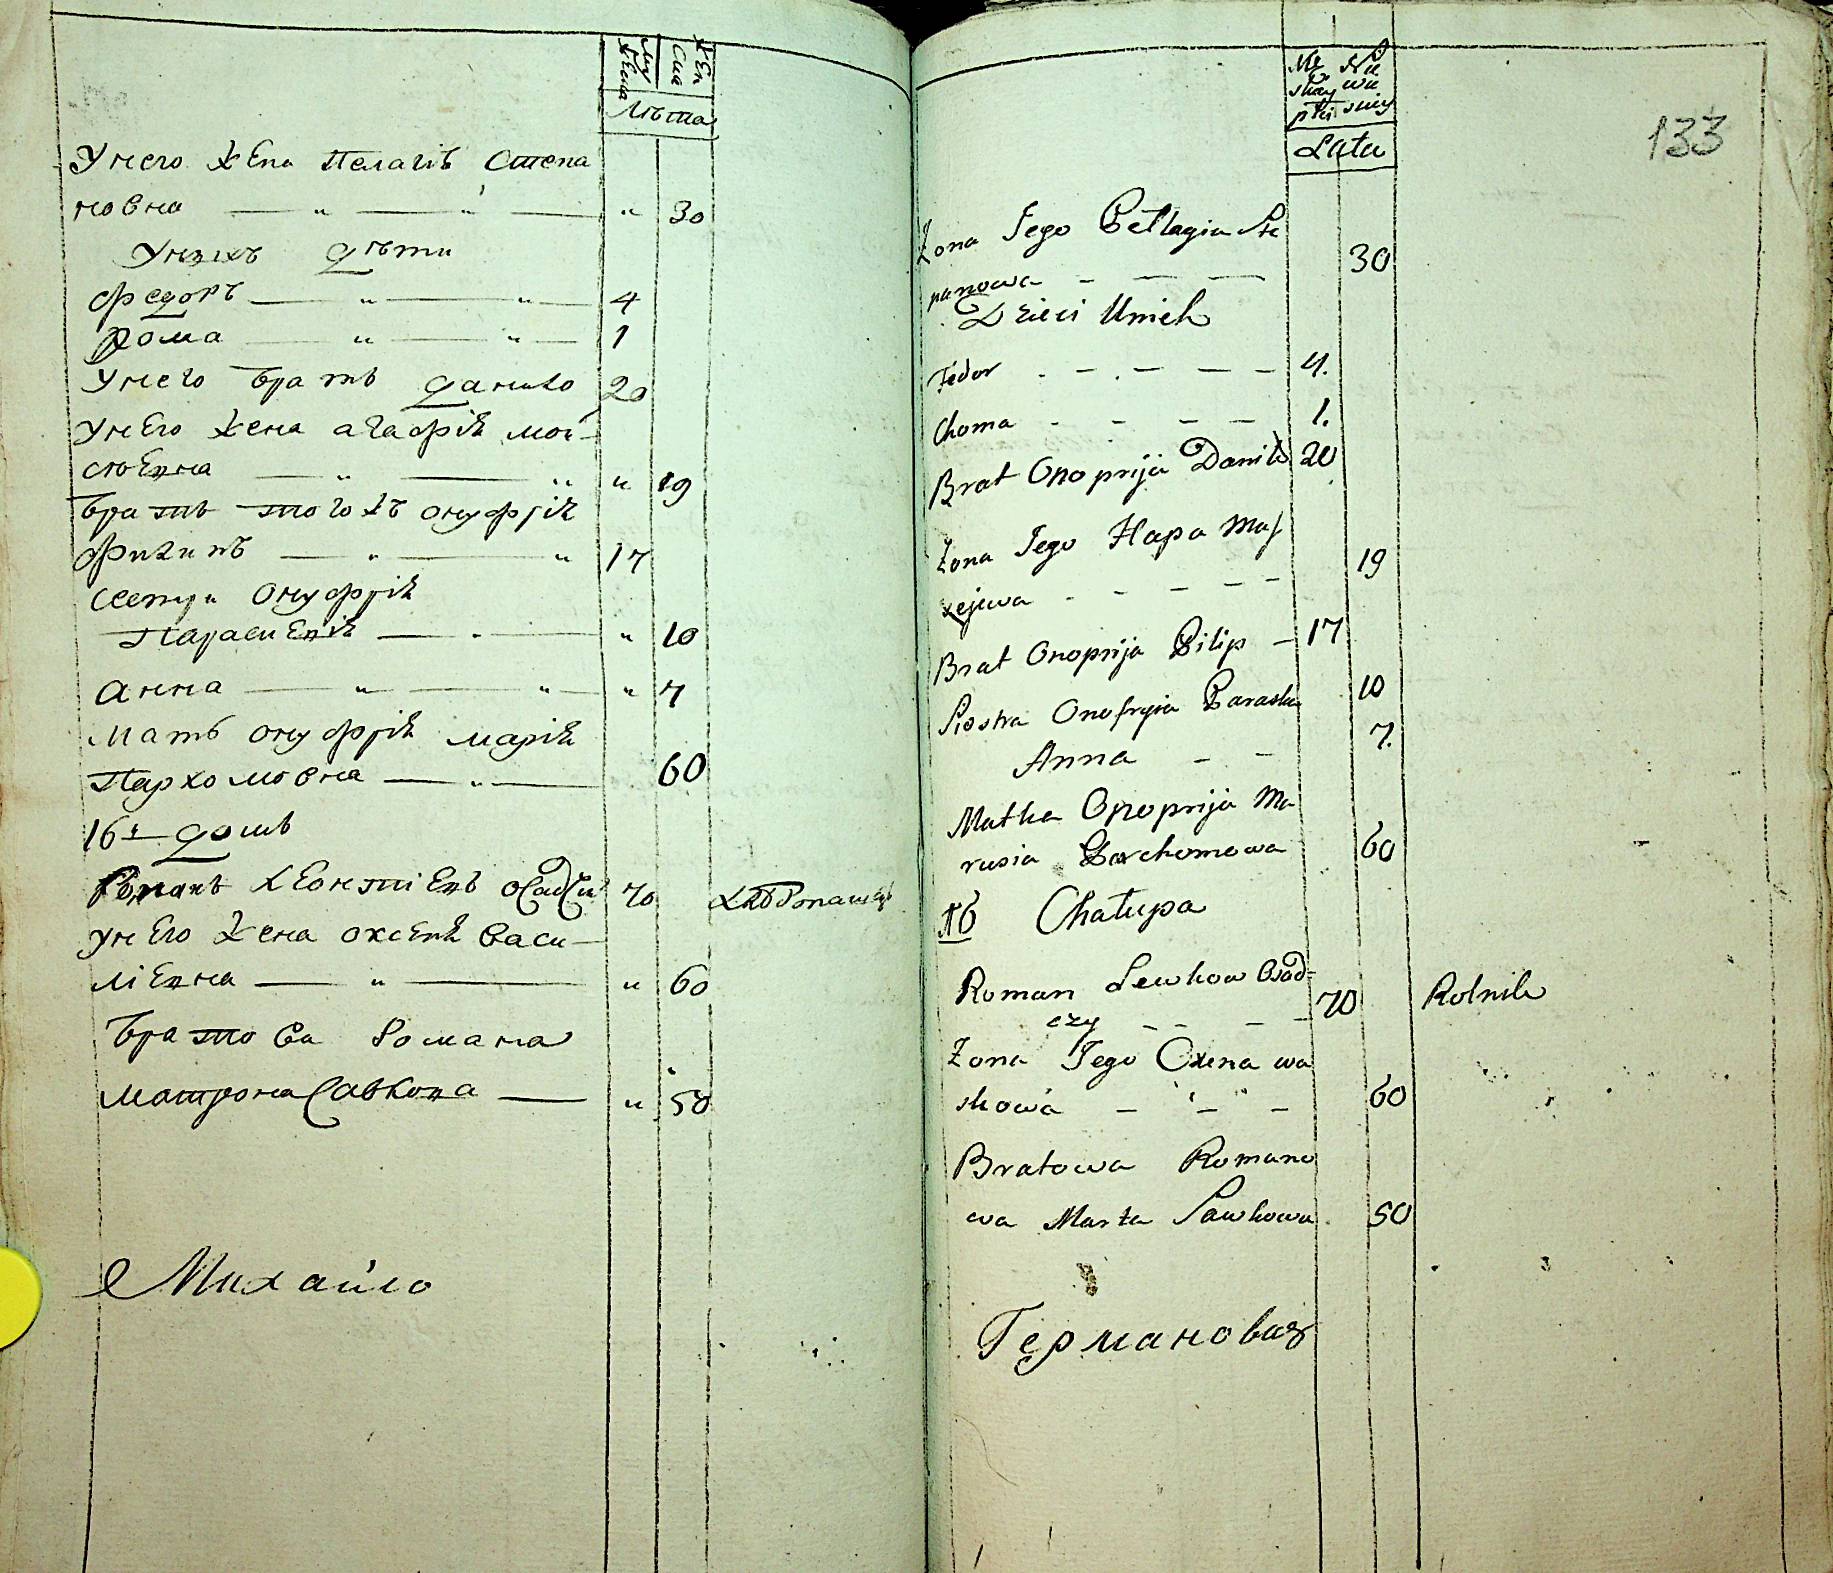 Му
жеска
Жен
ска
Лѣта
У него жена Пелагіѣ Степа
новна — „ — „ — „ 30
У нихъ дѣти
Федоръ — „ — „ — 4
Хома — „ — „ — 1
У него братъ Данило 20
У нЕго жена Агафіѣ мой-
сЮЕвна — „ — „ „ 19
братъ тогожъ Онуфріѣ
Филипъ — „ — „ 17
сестри Онуфріѣ
ПараскЕвіѣ — „ — „ 10
Анна — „ — „ — „ 7
Мать Онуфріѣ Маріѣ
Пархомовна — „ — 60
16й домъ
Романъ ЛЕонтіЕвъ Осадчи 70
у нЕго жена ОксЕнѣ Васи-
ліЕвна — „ — „ 60
братова Романа
Матрона Савкова — „ 50
Михайло
133
Mę
skay
płci
Nie
wie
sciey
Lata
Żona Jego Pellagia Ste
panowa - — — 30
Dzieci Unich
Fedor . - . - — — 4.
Choma - - - — 1.
Brat Onoprija Daniło 20
Żona Jego Hapa Moj
żejewa - - - - - 19
Brat Onoprija Pilip — 17
Siostra Onofryia Paraska 10
Anna - - 7.
Matka Onoprija Ma
rusia Parchomowa 60
16 Chałupa
Roman Lewkow Osad=
czy - - - - 70 Rolnik
Żona Jego Oxena wa
skowa — - — 60
Bratowa Romano
wa Marta Sawkowa. 50
Германовъ